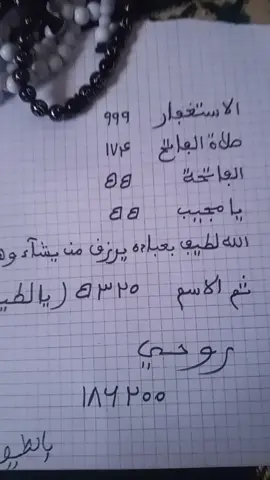 الاستغفار ٩٩٩
صلاة الفاتح
الفاتحة
يا مجيب
الله لطيف بعباده يرزق من يشآء وهو
ثم الاسم (يا لطيف
روحي
١٨٦٢٠٠
يا لطيف